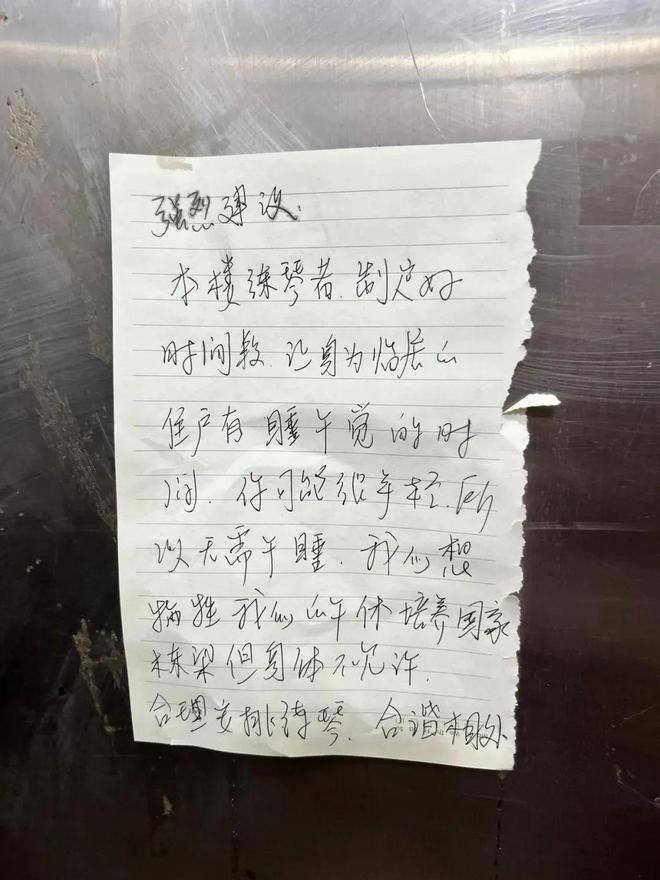 强烈建议:
本楼练琴者.制定好
时间段.让身为临居的
住户有睡午觉的时
间.你可能很年轻.所
以无需午睡.我们想
牺牲我们的午休培养国家
栋梁但身体不允许.
合理安排练琴.合谐相处